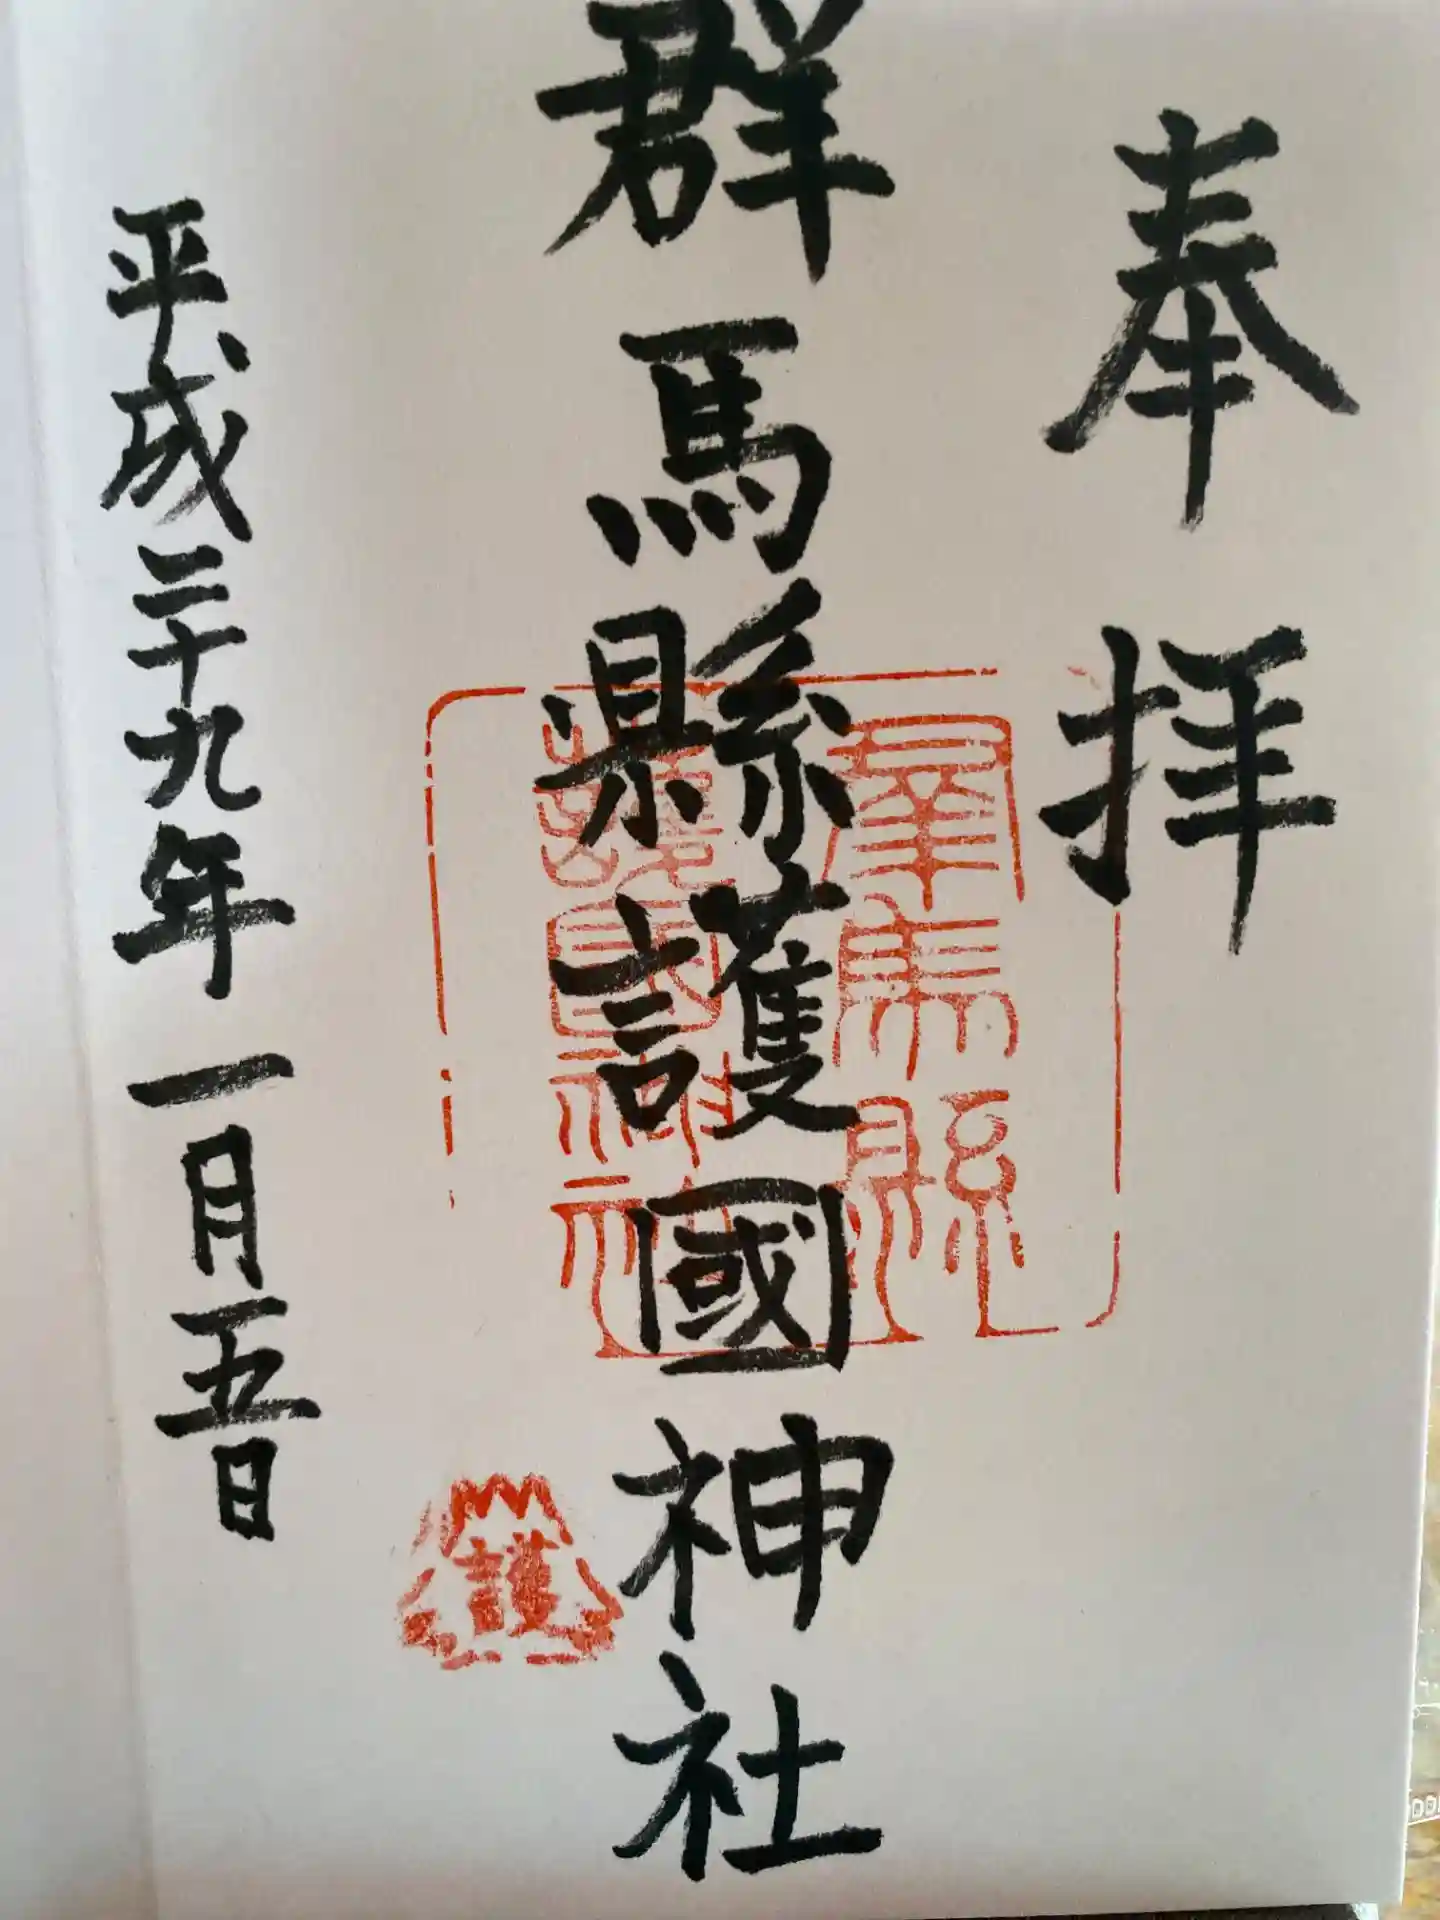 奉拝
群馬縣護國神社
平成二十九年一月五日
羣馬縣
護國神社
護